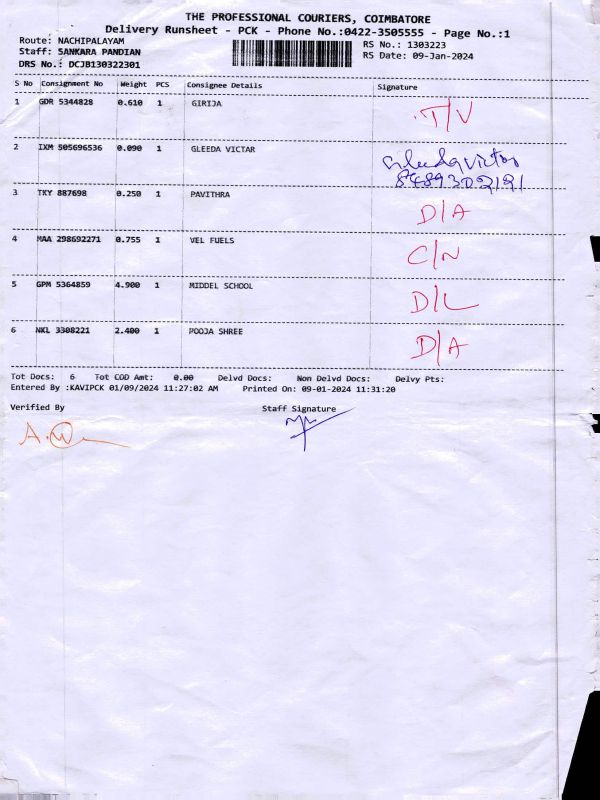 THE PROFESSIONAL COURIERS, COIMBATORE
Delivery Runsheet - PCK - Phone No.:0422-3505555 - Page No.:1
Route: NACHIPALAYAM
RS No.: 1303223
Staff: SANKARA PANDIAN
RS Date: 09-Jan-2024
DRS No.: DCJB130322301
S No Consignment No Weight PCS Consignee Details Signature
1 GDR 5344828 0.610 1 GIRIJA T/V
2 IXM 505696536 0.090 1 GLEEDA VICTAR Gleeda victor
8489302191
3 TKY 887698 0.250 1 PAVITHRA D/A
4 MAA 298692271 0.755 1 VEL FUELS C/N
5 GPM 5364859 4.900 1 MIDDEL SCHOOL D/L
6 NKL 3308221 2.400 1 POOJA SHREE D/A
Tot Docs: 6 Tot COD Amt: 0.00 Delvd Docs: Non Delvd Docs: Delvy Pts:
Entered By :KAVIPCK 01/09/2024 11:27:02 AM Printed On: 09-01-2024 11:31:20
Verified By Staff Signature